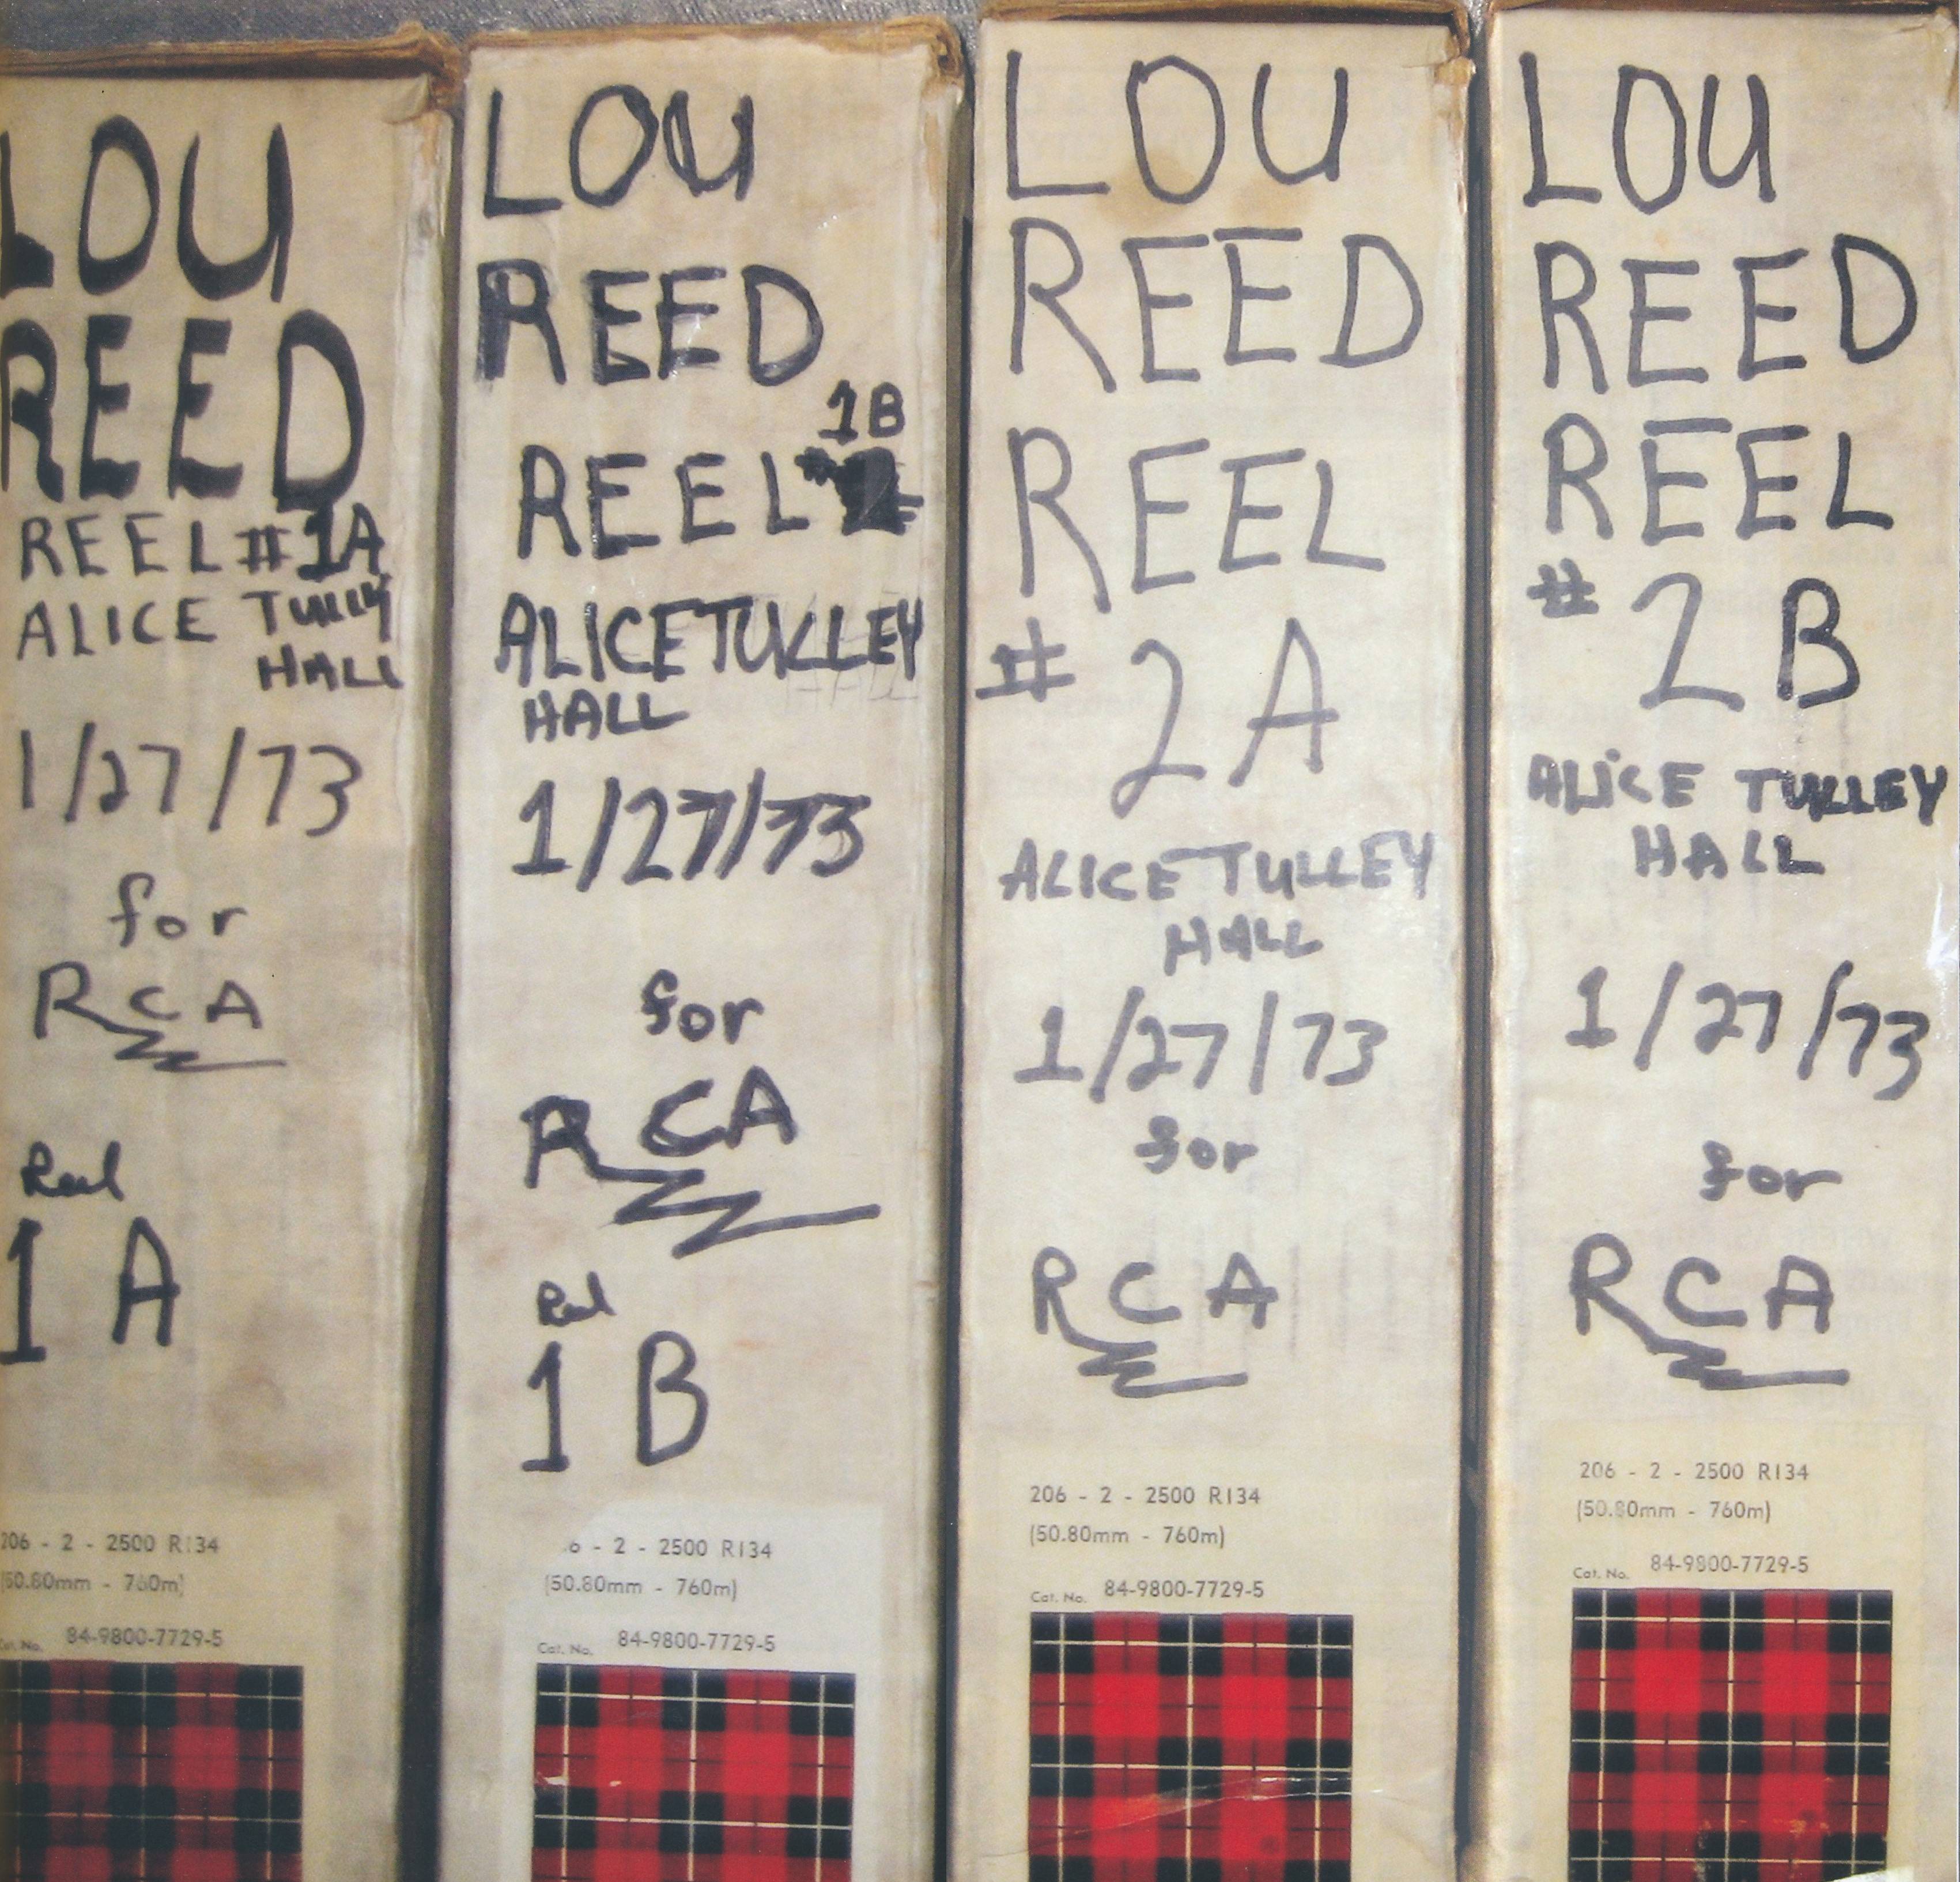 LOU
REED
REEL #1A
ALICE TULLY
HALL
1/27/73
for
RCA
Reel
1 A
206 - 2 - 2500 R134
(50.80mm - 760m)
Cat. No. 84-9800-7729-5
LOU
REED
1B
REEL
ALICE TULLEY
HALL
1/27/73
for
RCA
Reel
1 B
6 - 2 - 2500 R134
(50.80mm - 760m)
Cat. No. 84-9800-7729-5
LOU
REED
REEL
# 2A
ALICE TULLEY
HALL
1/27/73
for
RCA
206 - 2 - 2500 R134
(50.80mm - 760m)
Cat. No. 84-9800-7729-5
LOU
REED
REEL
# 2B
ALICE TULLEY
HALL
1/27/73
for
RCA
206 - 2 - 2500 R134
(50.80mm - 760m)
Cat. No. 84-9800-7729-5